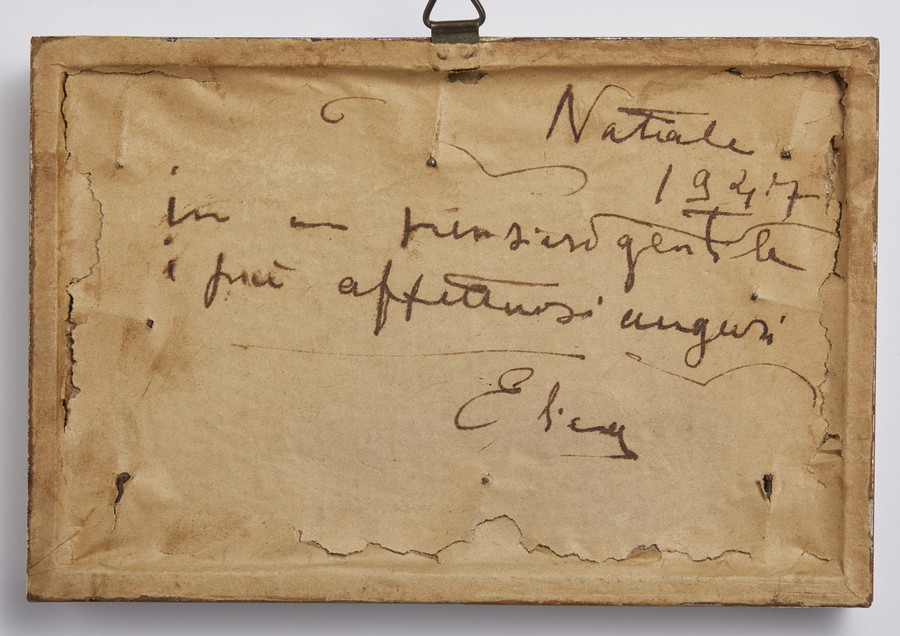 Natale
1947
in un pensiero gentile
i più affettuosi auguri